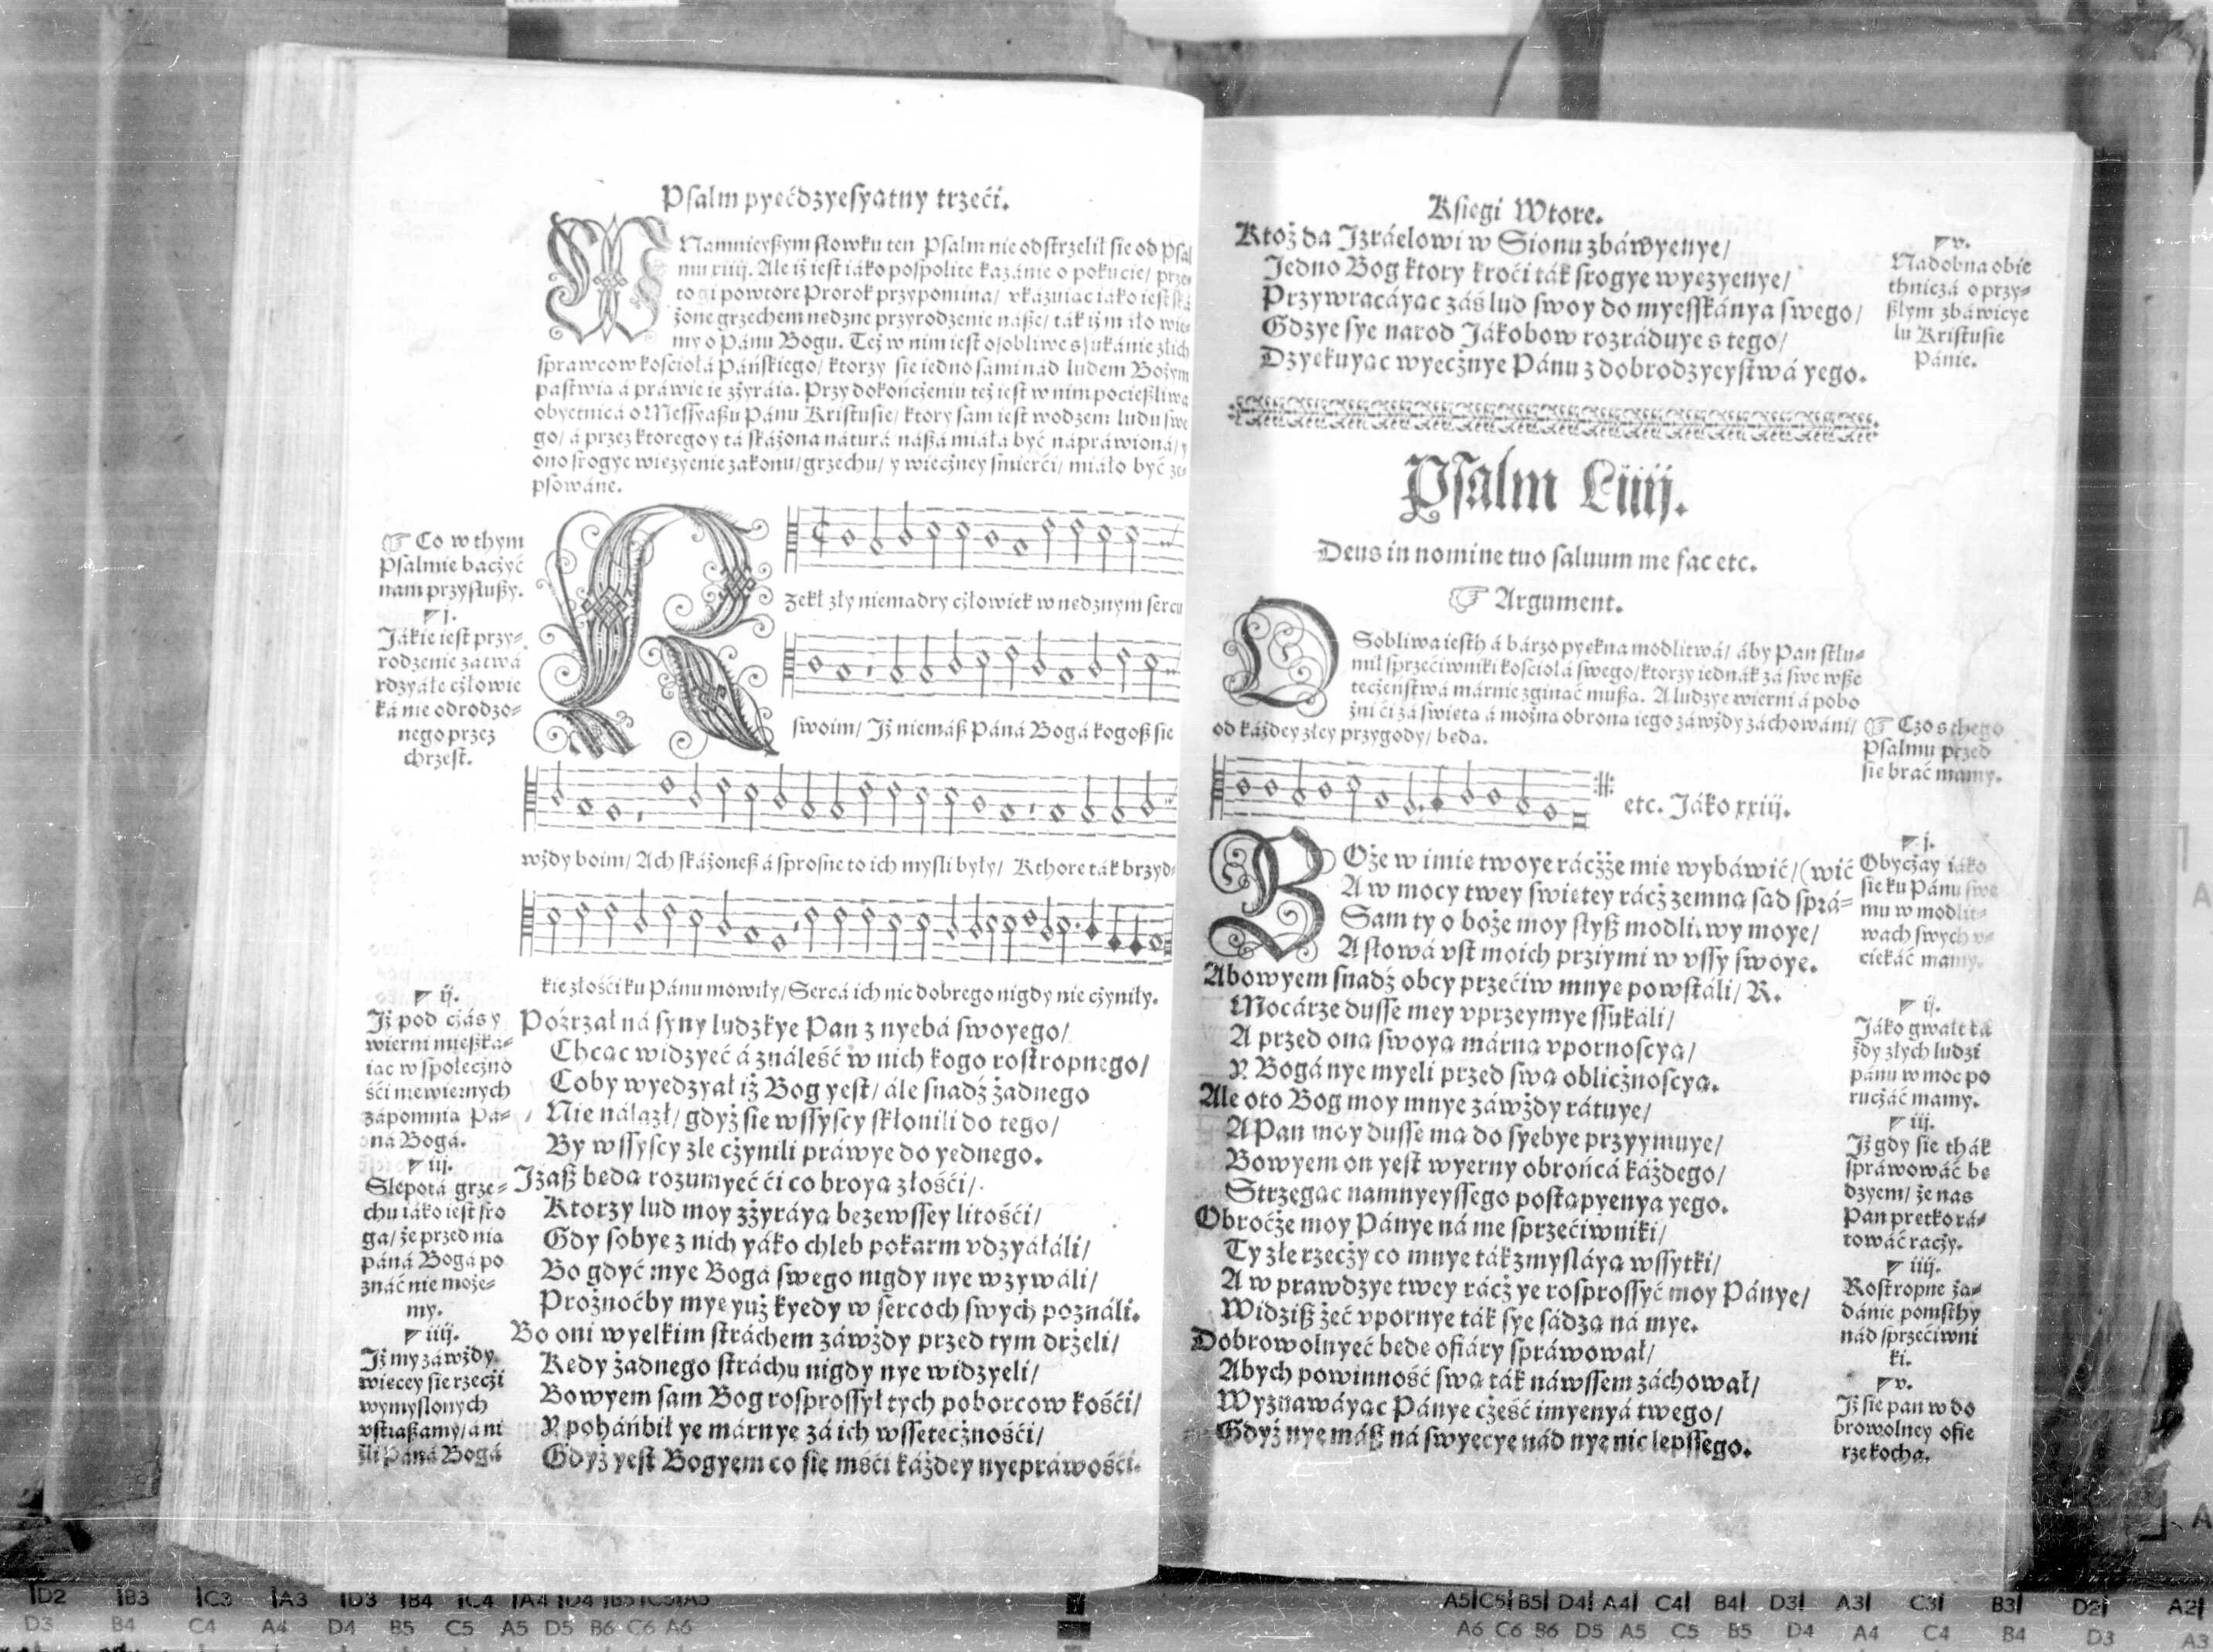 Psalm pyećdzyesyatny trzeći.
NAmnieyßym słowku ten Psalm nie odstrzelił sie od Psal
mu xiiij. Ale iż iest iáko pospolite kazánie o pokucie/ prze-
to gi powtore Prorok przypomina/ vkázuiac iáko iest ská
żone grzechem nedzne przyrodzenie náße/ ták iż máło wie-
my o Pánu Bogu. Też w nim iest osobliwe sfukánie złich
sprawcow kościołá Páńskiego/ ktorzy sie iedno sámi nád ludem Bożym
pastwia á práwie ie zżyráia. Przy dokończeniu też iest w nim pocießliwa
obyetnicá o Messyaßu Pánu Kristusie/ ktory sam iest wodzem ludu swe
go/ á przez ktorego y tá skáżona náturá náßá miáłá być nápráwiona/ y
ono srogye wiezyenie zakonu/ grzechu/ y wieczney śmierći/ miáło być ze-
psowáne.
☞ Co w thym
Psalmie baczyć
nam przysłußy.
j.
Jákie iest przy-
rodzenie zátwá
rdzyáłe człowie
ká nie odrodzo-
nego przez
chrzest.
RZekł zły niemadry człowiek w nedznym sercu
swoim/ Iż niemáß Páná Bogá kogoß sie
wżdy boim/ Ach skáżoneß á sprosne to ich mysli były/ Kthore ták brzyd-
kie złośći ku Pánu mowiły/ Sercá ich nic dobrego nigdy nie czyniły.
ij.
Iż pod czás y
wierni mießká-
iac w społeczno
śći niewiernych
zápomnia Pá-
ná Bogá.
iij.
Slepotá grze-
chu iáko iest sro
ga/ że przed nia
páná Bogá po
znáć nie może-
my.
iiij.
Iż my záwżdy
wiecey sie rzeczi
wymyslonych
vstraßamy/ á ni
żli Páná Bogá
Poźrzał ná syny ludzkye Pan z nyebá swoyego/
Chcac widzyeć á ználeść w nich kogo rostropnego/
Coby wyedzyał iż Bog yest/ ále snadź żadnego
Nie nálazł/ gdyż sie wssyscy skłonili do tego/
By wssyscy zle czynili práwye do yednego.
Iżaß beda rozumyeć ći co broya złośći/
Ktorzy lud moy zżyráya bezewssey litośći/
Gdy sobye z nich yáko chleb pokarm vdzyáłáli/
Bo gdyć mye Bogá swego nigdy nye wzywáli/
Prożnoćby mye yuż kyedy w sercoch swych poználi.
Bo oni wyelkim stráchem záwżdy przed tym drżeli/
Kedy żadnego stráchu nigdy nye widzyeli/
Bowyem sam Bog rosprossył tych poborcow kośći/
Y poháńbił ye márnye zá ich wssetecznośći/
Gdyż yest Bogyem co sie mśći káżdey nyepráwośći.
Ksiegi Wtore.
Ktoż da Izráelowi w Sionu zbáwyenye/
Jedno Bog ktory kroći ták srogye wyezyenye/
Przywracáyac zás lud swoy do myesskánya swego/
Gdzye sye narod Jákobow rozráduye s tego/
Dzyekuyac wyecznye Pánu z dobrodzyeystwá yego.
v.
Nadobna obie
thniczá o przy-
ßłym zbáwicye
lu Kristusie
Pánie.
Psalm Liiij.
Deus in nomine tuo saluum me fac etc.
☞ Argument.
OSobliwa iesth á bárzo pyekna modlitwá/ áby Pan stłu-
mił sprzećiwniki kościołá swego/ ktorzy iednák zá swe wße
teczeństwá márnie zginać mußa. A ludzye wierni á pobo
żni ći zá swieta á można obrona iego záwżdy záchowáni/
od káżdey złey przygody/ beda.
☞ Czo s thego
Psalmu przed
sie brać mamy.
etc. Jáko xxiij.
BOże w imie twoye ráczże mie wybáwić/ (wić
A w mocy twey swietey rácż zemna sad sprá-
Sam ty o boże moy słyß modlitwy moye/
A słowá vst moich prziymi w vssy swoye.
Abowyem snadź obcy przećiw mnye powstáli/ R.
Mocárze dusse mey vprzeymye ssukáli/
A przed ona swoya márna vpornoscya/
Y Bogá nye myeli przed swa oblicznoscya.
Ale oto Bog moy mnye záwżdy rátuye/
A Pan moy dusse ma do syebye przyymuye/
Bowyem on yest wyerny obrońcá káżdego/
Strzegac namnyeyssego postapyenya yego.
Obroćże moy Pánye ná me sprzećiwniki/
Ty złe rzeczy co mnye ták zmysláya wssytki/
A w prawdzye twey rácż ye rosprossyć moy Pánye/
Widziß żeć vpornye ták sye sádza ná mye.
Dobrowolnyeć bede ofiáry spráwował/
Abych powinność swa ták náwssem záchował/
Wyznawáyac Pánye cześć imyenyá twego/
Gdyż nye máß ná swyecye nád nye nic lepssego.
j.
Obyczay iáko
sie ku Pánu swe
mu w modlit-
wach swych v-
ciekáć mamy.
ij.
Jáko gwałt ká
żdy złych ludzi
pánu w moc po
ruczáć mamy.
iij.
Iż gdy sie thák
spráwowáć be
dzyem/ że nas
Pan pretko rá-
towáć raczy.
iiij.
Rostropne żá-
dánie pomsthy
nád sprzećiwni
ki.
v.
Iż sie pan w do
browolney ofie
rze kocha.
D2 B3 C3 A3 D3 B4 C4 A4 D4 B5 C5 A5
D3 B4 C4 A4 D4 B5 C5 A5 D5 B6 C6 A6
A5 C5 B5 D4 A4 C4 B4 D3 A3 C3 B3 D2 A2
A6 C6 B6 D5 A5 C5 B5 D4 A4 C4 B4 D3 A3